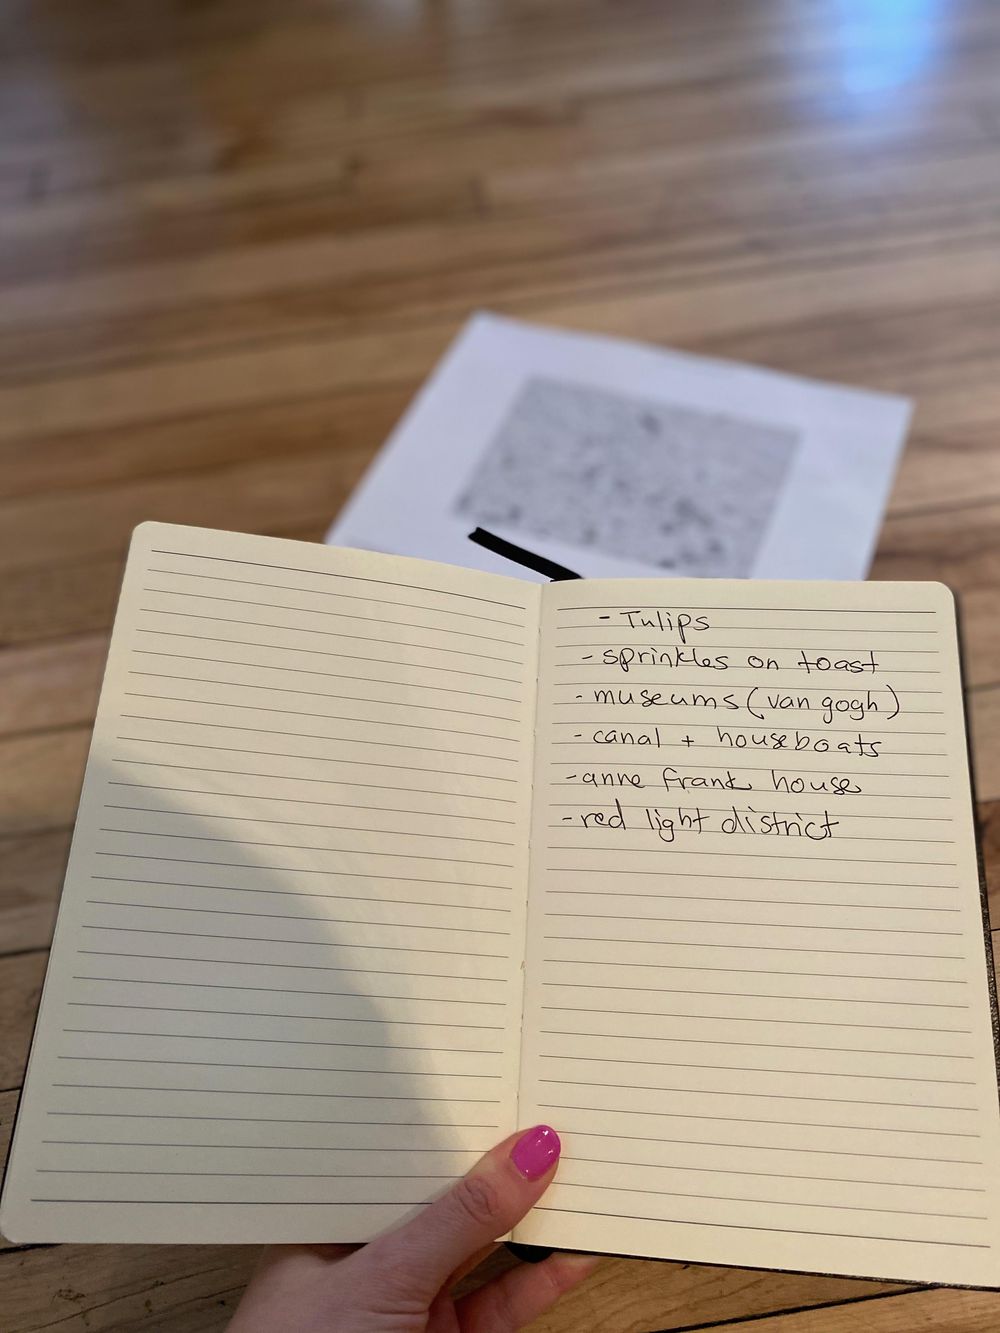 - Tulips
- sprinkles on toast
- museums (van gogh)
- canal + houseboats
- anne frank house
- red light district